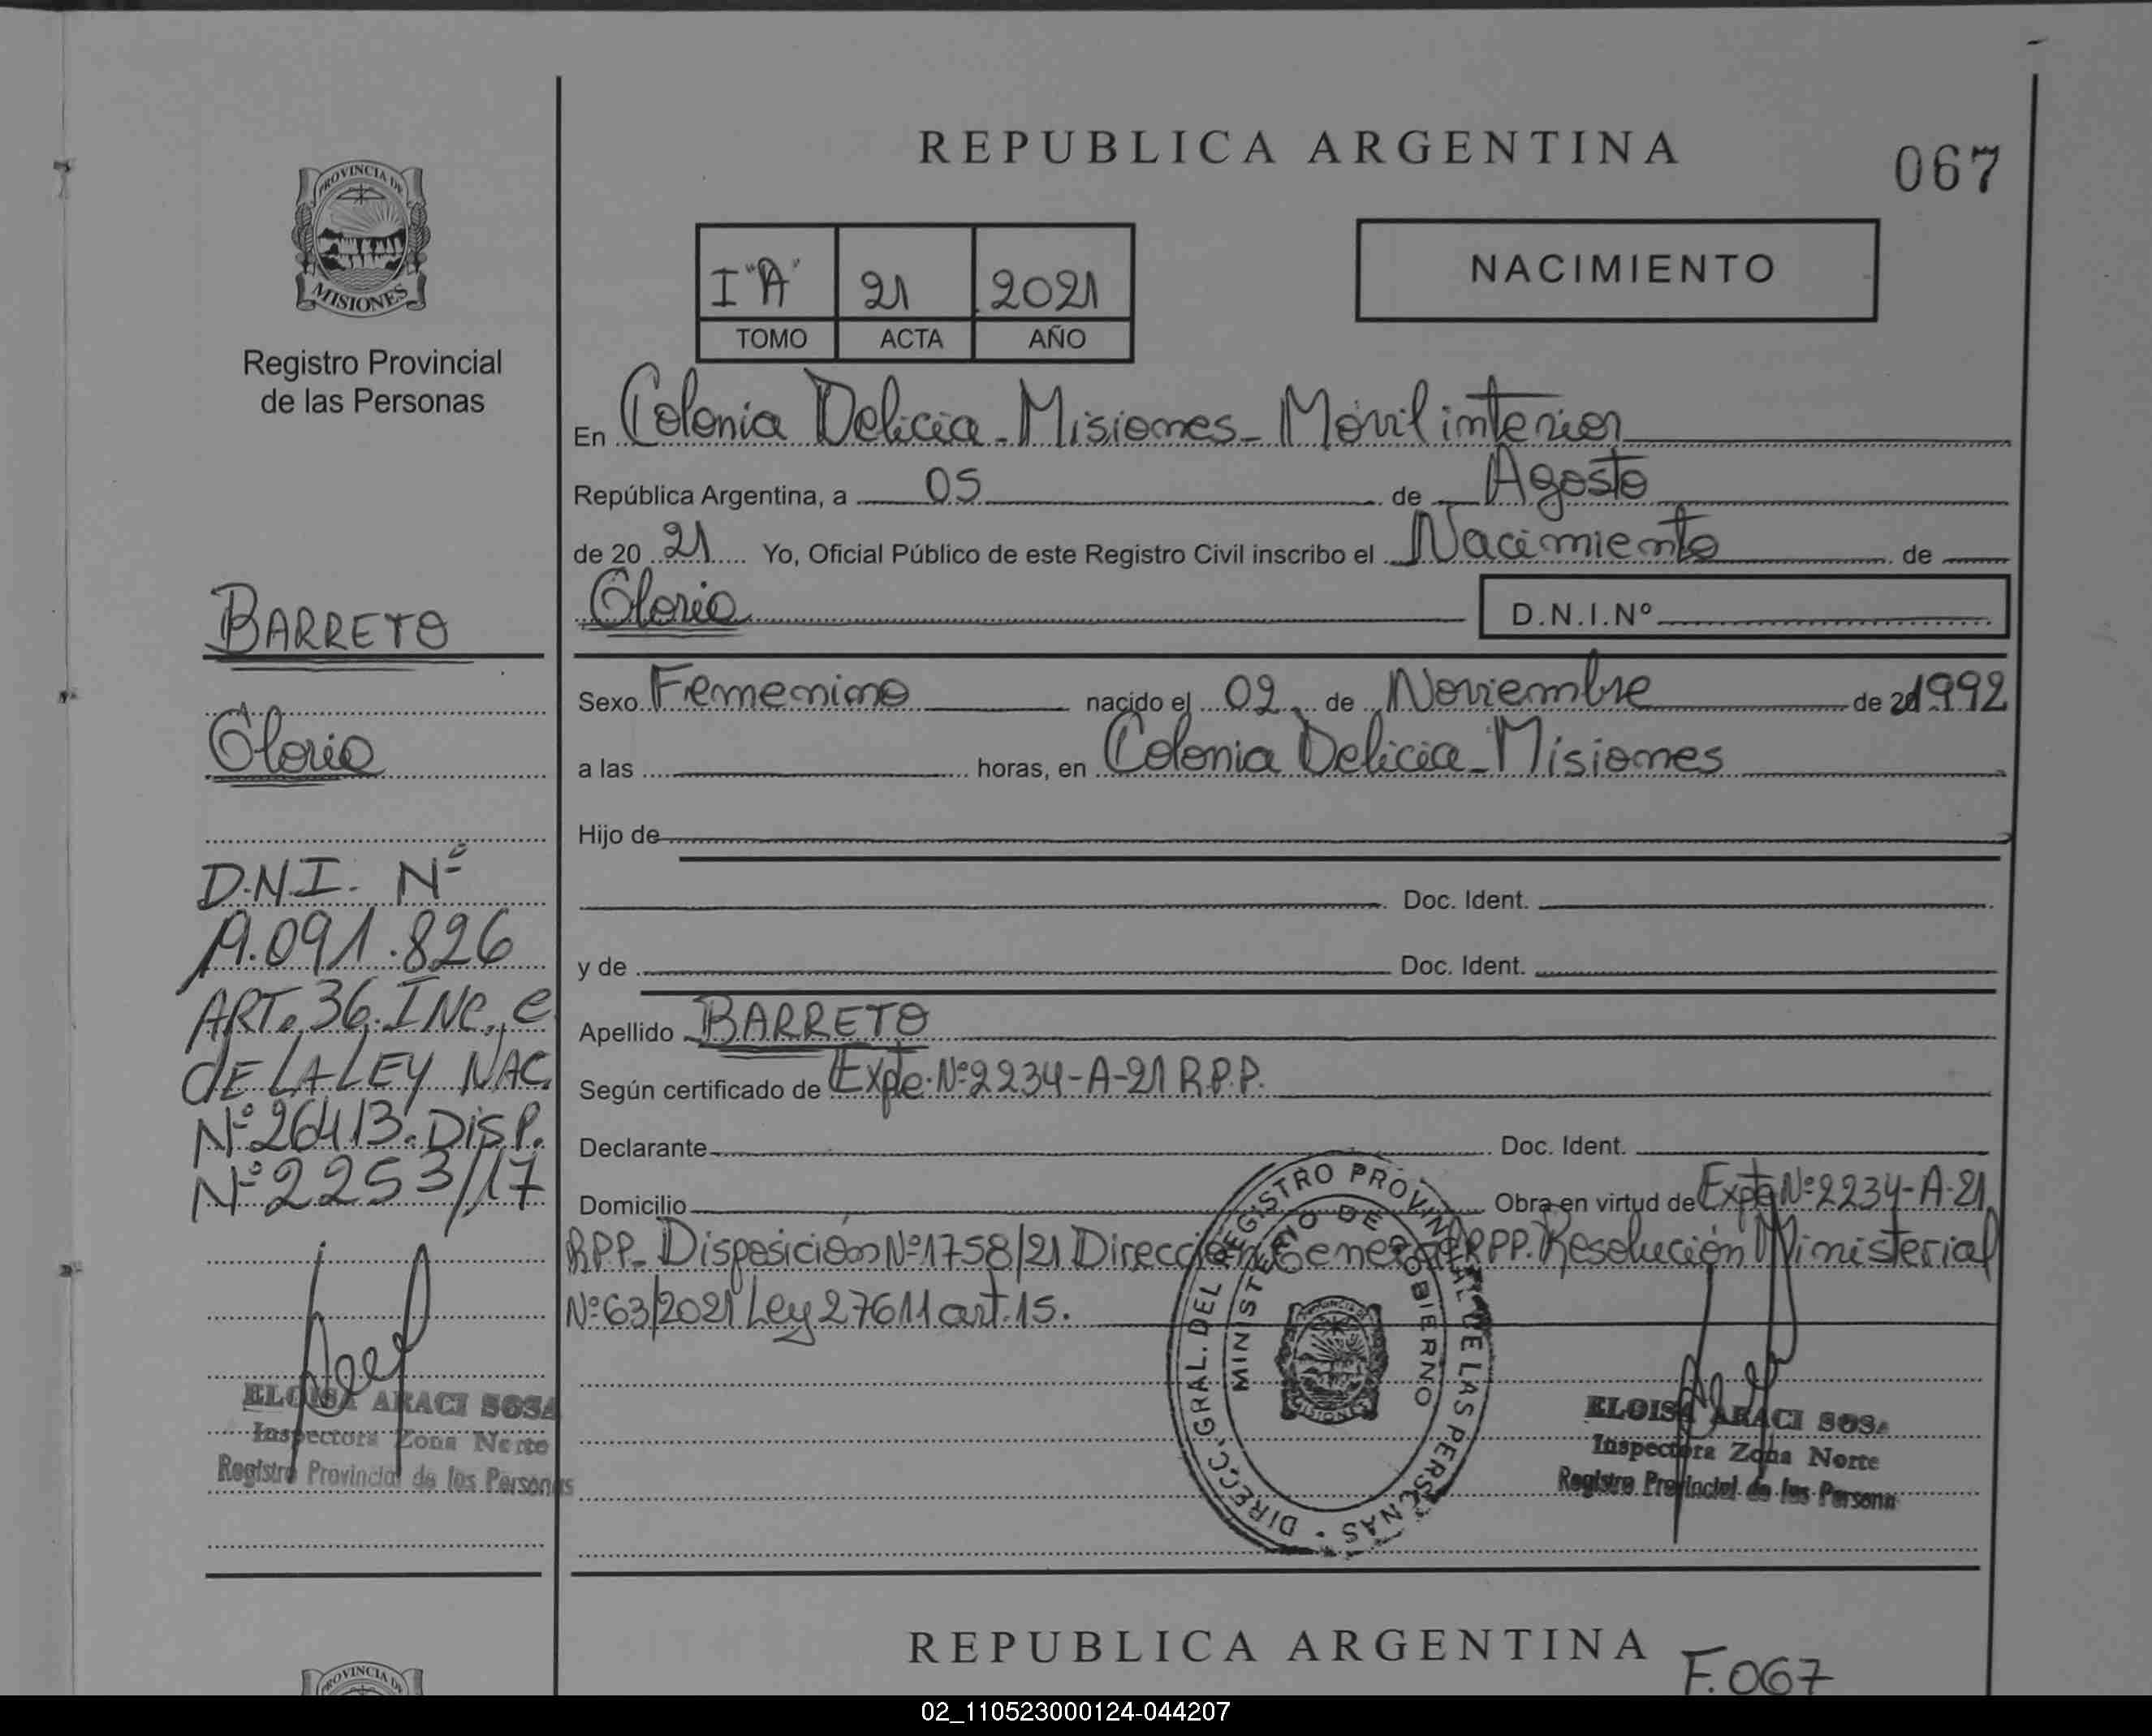 REPUBLICA ARGENTINA
067
PROVINCIA DE
MISIONES
Registro Provincial
de las Personas
I "A" 21 2021
TOMO ACTA AÑO
NACIMIENTO
En Colonia Delicia - Misiones - Móvil interior
República Argentina, a 05 de Agosto
de 20 21 Yo, Oficial Público de este Registro Civil inscribo el Nacimiento de
Gloria D.N.I.Nº
Sexo Femenino nacido el 02 de Noviembre de 1992
a las horas, en Colonia Delicia - Misiones
Hijo de
Doc. Ident.
y de Doc. Ident.
Apellido BARRETO
Según certificado de Expte. Nº 2234-A-21 R.P.P.
Declarante Doc. Ident.
Domicilio Obra en virtud de Expte Nº 2234-A-21
RPP - Disposición Nº 1758/21 Dirección General RPP. Resolución Ministerial
Nº 63/2021 Ley 27611 art. 15.
BARRETO
Gloria
D.N.I. Nº
A.091.826
ART. 36. INC. e
DE LA LEY NAC.
Nº 26413. DISP.
Nº 2253/17
ELOISA ARACI SOSA
Inspectora Zona Norte
Registro Provincial de las Personas
DIRECC. GRAL. DEL REGISTRO PROVINCIAL DE LAS PERSONAS
MINISTERIO DE GOBIERNO
MISIONES
ELOISA ARACI SOSA
Inspectora Zona Norte
Registro Provincial de las Persona
REPUBLICA ARGENTINA
F. 067
PROVINCIA DE
02_110523000124-044207